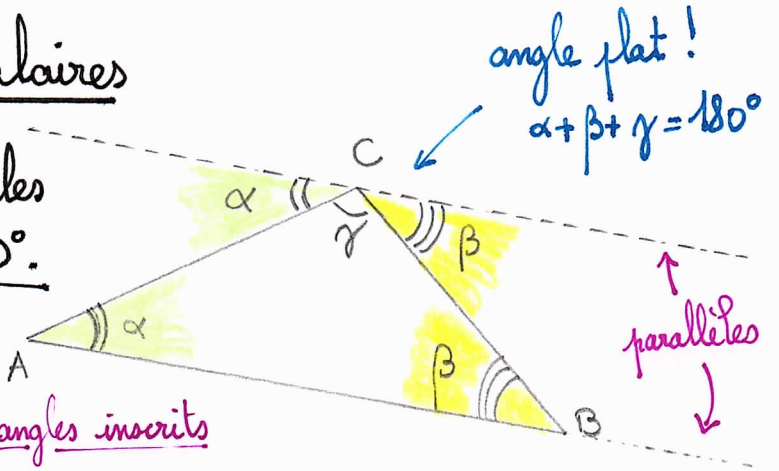 laires
angle plat !
α+β+γ=180°
C
les
α
γ
β
0°.
α
A
β
parallèles
B
angles inscrits